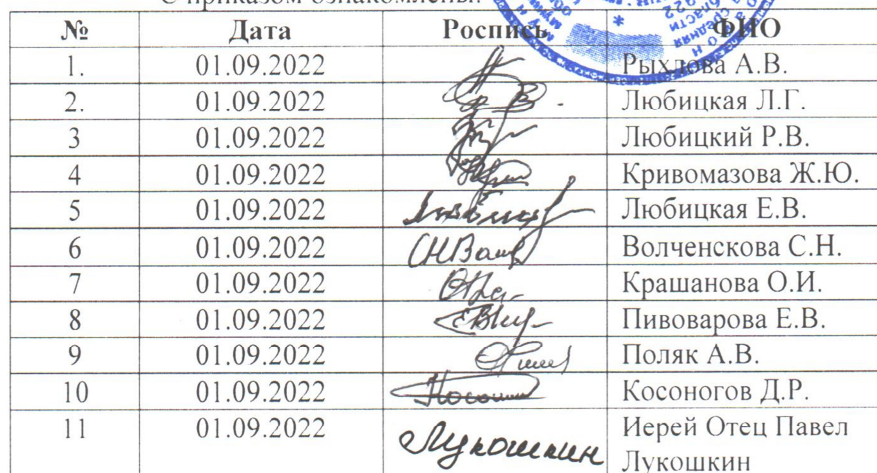 С приказом ознакомлены:
№ Дата Роспись ФИО
1. 01.09.2022 Рыхлова А.В.
2. 01.09.2022 Любицкая Л.Г.
3 01.09.2022 Любицкий Р.В.
4 01.09.2022 Кривомазова Ж.Ю.
5 01.09.2022 Любицкая Е.В.
6 01.09.2022 Волченскова С.Н.
7 01.09.2022 Крашанова О.И.
8 01.09.2022 Пивоварова Е.В.
9 01.09.2022 Поляк А.В.
10 01.09.2022 Косоногов Д.Р.
11 01.09.2022 Лукошкин Иерей Отец Павел
Лукошкин